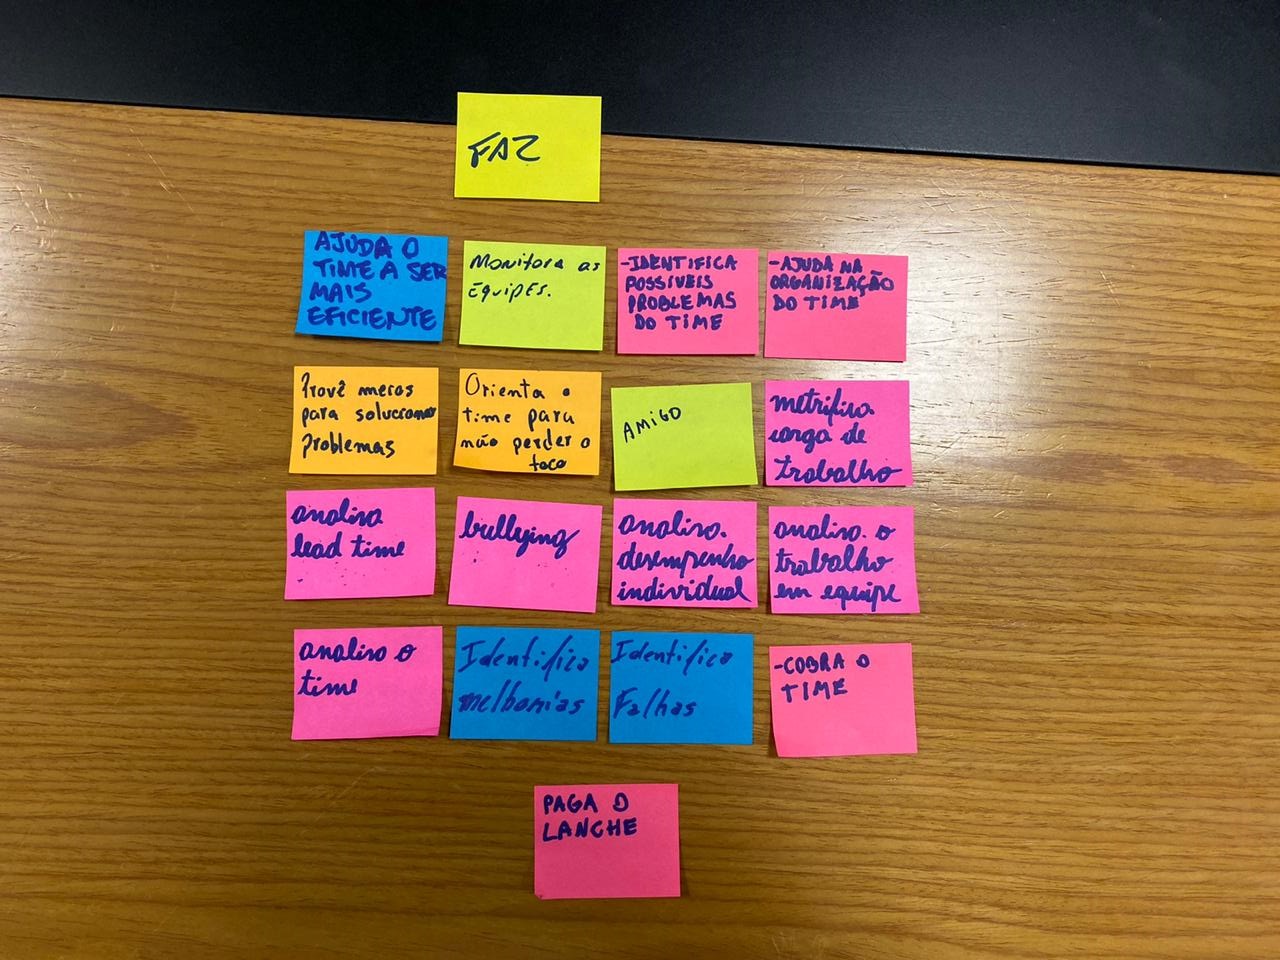 FAZ
AJUDA O
TIME A SER
MAIS
EFICIENTE
Monitora as
Equipes.
-IDENTIFICA
POSSÍVEIS
PROBLEMAS
DO TIME
-AJUDA NA
ORGANIZAÇÃO
DO TIME
Provê meios
para solucionar
problemas
Orienta o
time para
não perder o
foco
AMIGO
metrifica
carga de
trabalho
analisa
lead time
bullying
analisa.
desempenho
individual
analisa. o
trabalho
em equipe
analisa o
time
Identifica
melhorias
Identifica
Falhas
-COBRA O
TIME
PAGA O
LANCHE